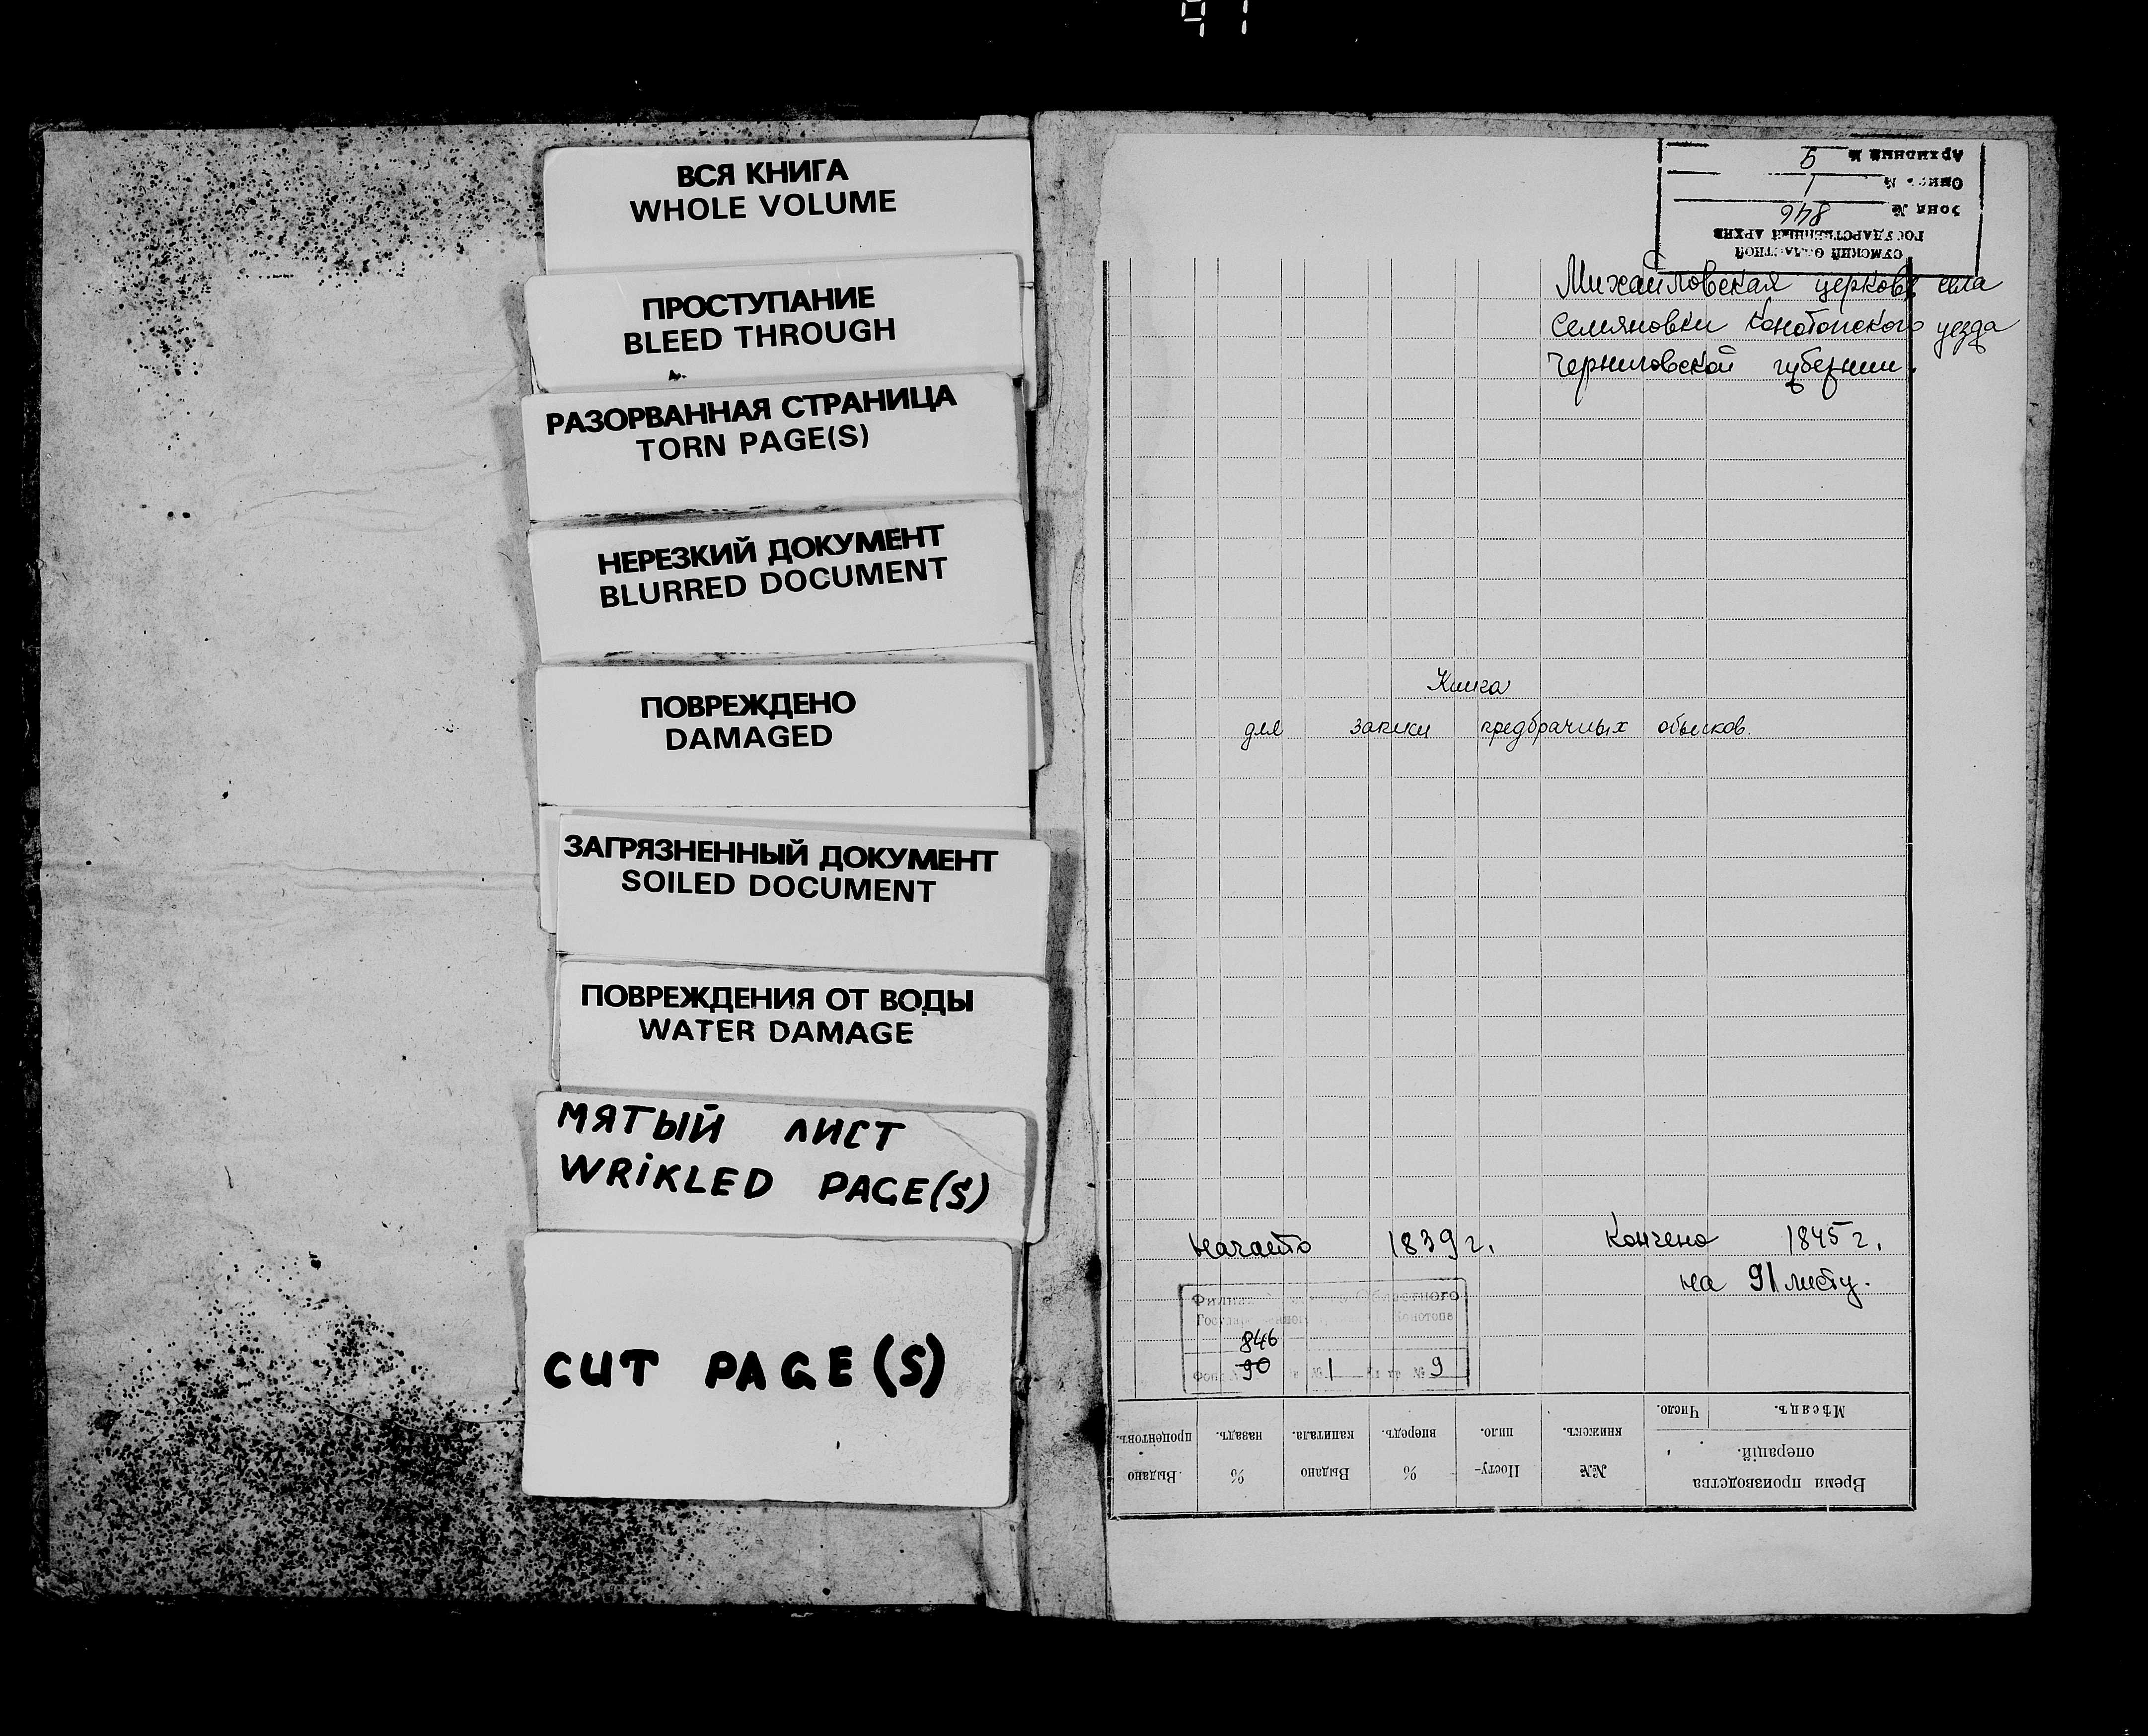 91
ВСЯ КНИГА
WHOLE VOLUME
ПРОСТУПАНИЕ
BLEED THROUGH
РАЗОРВАННАЯ СТРАНИЦА
TORN PAGE(S)
НЕРЕЗКИЙ ДОКУМЕНТ
BLURRED DOCUMENT
ПОВРЕЖДЕНО
DAMAGED
ЗАГРЯЗНЕННЫЙ ДОКУМЕНТ
SOILED DOCUMENT
ПОВРЕЖДЕНИЯ ОТ ВОДЫ
WATER DAMAGE
МЯТЫЙ ЛИСТ
WRiKLED PAGE(S)
CUT PAGE(S)
СУМСКИЙ ОБЛАСТНОЙ
ГОСУДАРСТВЕННЫЙ АРХИВ
Фонд № 846
Опись № 1
Архивный №
Михайловская церковь села
Семяновки Конотопского уезда
Черниговской губернии.
Книга
для записи предбрачных обысков.
Начато 1839 г. Кончено 1845 г.
на 91 листу.
Филиал Областного
Конотопе
846
90 № 1 № 9
Время производства операцій.
Мѣсяцъ. Число.
№№ книжекъ.
Посту- пило.
% впередъ.
Выдано капитала.
% назадъ.
Выдано процентовъ.